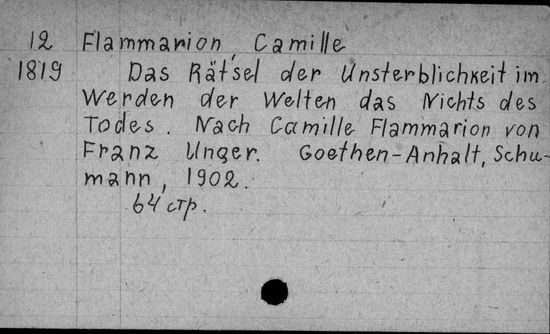 12 Flammarion, Camille
1819 Das Rätsel der Unsterblichkeit im
Werden der Welten das Nichts des
Todes. Nach Camille Flammarion von
Franz Unger. Goethen-Anhalt, Schu-
mann, 1902.
64 стр.